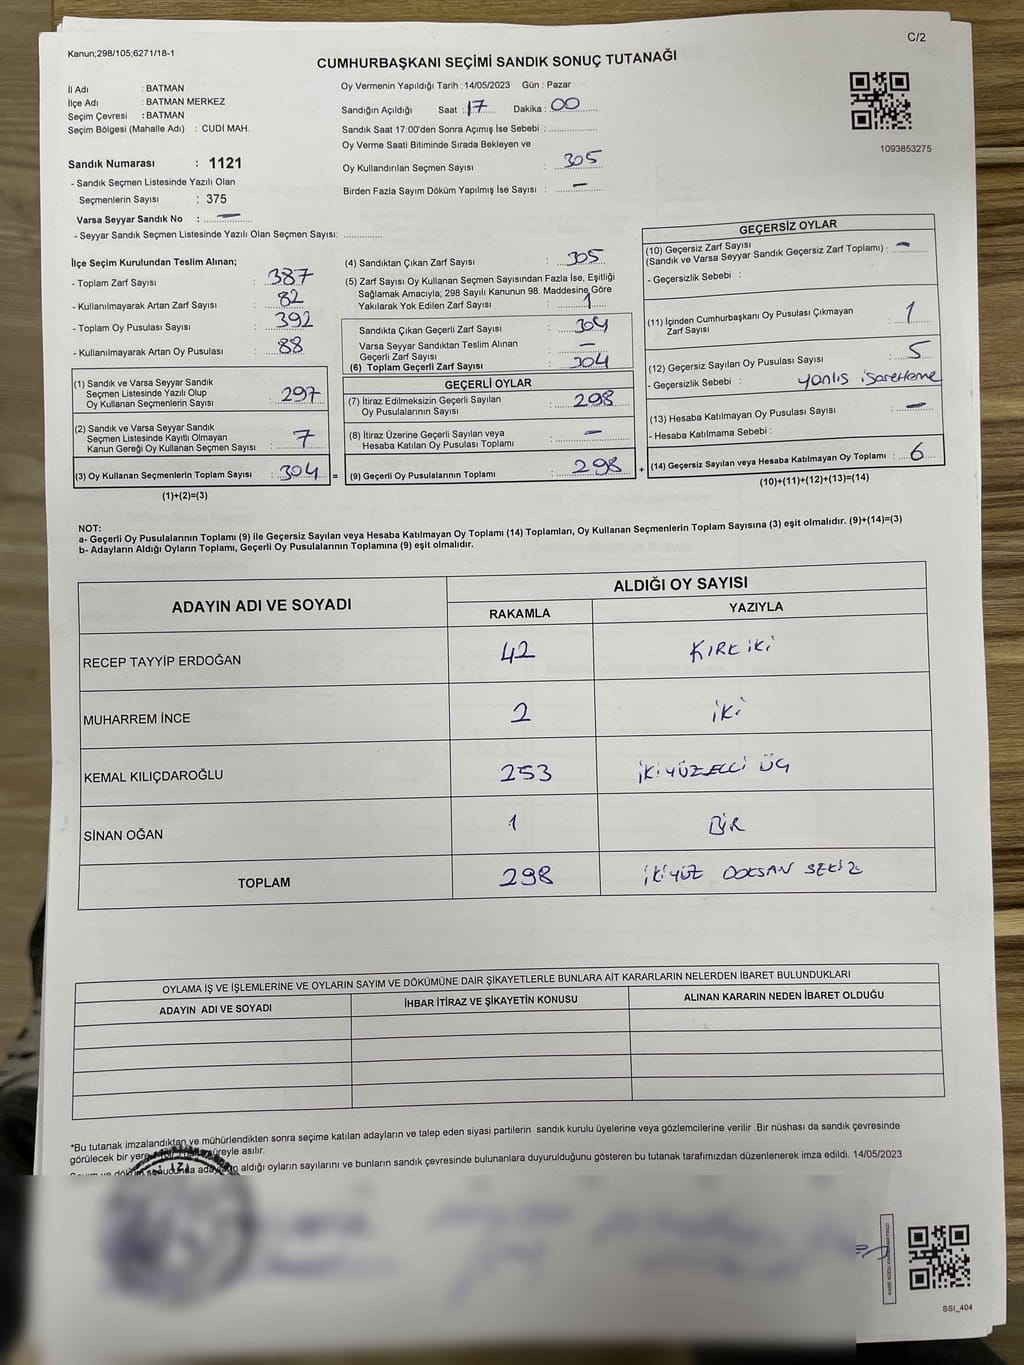 C/2
Kanun;298/105,6271/18-1
CUMHURBAŞKANI SEÇİMİ SANDIK SONUÇ TUTANAĞI
İl Adı : BATMAN
İlçe Adı : BATMAN MERKEZ
Seçim Çevresi : BATMAN
Seçim Bölgesi (Mahalle Adı) : CUDİ MAH.
Sandık Numarası : 1121
- Sandık Seçmen Listesinde Yazılı Olan
Seçmenlerin Sayısı : 375
Varsa Seyyar Sandık No : —
- Seyyar Sandık Seçmen Listesinde Yazılı Olan Seçmen Sayısı: ..............
Oy Vermenin Yapıldığı Tarih : 14/05/2023 Gün : Pazar
Sandığın Açıldığı Saat : 17 Dakika : 00
Sandık Saat 17:00'den Sonra Açımış İse Sebebi : ..............
Oy Verme Saati Bitiminde Sırada Bekleyen ve
Oy Kullandırılan Seçmen Sayısı : 305
Birden Fazla Sayım Döküm Yapılmış İse Sayısı : —
1093853275
İlçe Seçim Kurulundan Teslim Alınan;
- Toplam Zarf Sayısı : 387
- Kullanılmayarak Artan Zarf Sayısı : 82
- Toplam Oy Pusulası Sayısı : 392
- Kullanılmayarak Artan Oy Pusulası : 88
(1) Sandık ve Varsa Seyyar Sandık
Seçmen Listesinde Yazılı Olup
Oy Kullanan Seçmenlerin Sayısı : 297
(2) Sandık ve Varsa Seyyar Sandık
Seçmen Listesinde Kayıtlı Olmayan
Kanun Gereği Oy Kullanan Seçmen Sayısı : 7
(3) Oy Kullanan Seçmenlerin Toplam Sayısı : 304 =
(1)+(2)=(3)
(4) Sandıktan Çıkan Zarf Sayısı : 305
(5) Zarf Sayısı Oy Kullanan Seçmen Sayısından Fazla İse, Eşitliği
Sağlamak Amacıyla; 298 Sayılı Kanunun 98. Maddesine Göre
Yakılarak Yok Edilen Zarf Sayısı : 1
Sandıkta Çıkan Geçerli Zarf Sayısı : 304
Varsa Seyyar Sandıktan Teslim Alınan
Geçerli Zarf Sayısı : —
(6) Toplam Geçerli Zarf Sayısı : 304
GEÇERLİ OYLAR
(7) İtiraz Edilmeksizin Geçerli Sayılan
Oy Pusulalarının Sayısı : 298
(8) İtiraz Üzerine Geçerli Sayılan veya
Hesaba Katılan Oy Pusulası Toplamı : —
(9) Geçerli Oy Pusulalarının Toplamı : 298 +
GEÇERSİZ OYLAR
(10) Geçersiz Zarf Sayısı
(Sandık ve Varsa Seyyar Sandık Geçersiz Zarf Toplamı) : —
- Geçersizlik Sebebi :
(11) İçinden Cumhurbaşkanı Oy Pusulası Çıkmayan
Zarf Sayısı : 1
(12) Geçersiz Sayılan Oy Pusulası Sayısı : 5
- Geçersizlik Sebebi : yanlıs işaretleme
(13) Hesaba Katılmayan Oy Pusulası Sayısı : —
- Hesaba Katılmama Sebebi :
(14) Geçersiz Sayılan veya Hesaba Katılmayan Oy Toplamı : 6
(10)+(11)+(12)+(13)=(14)
NOT:
a- Geçerli Oy Pusulalarının Toplamı (9) ile Geçersiz Sayılan veya Hesaba Katılmayan Oy Toplamı (14) Toplamları, Oy Kullanan Seçmenlerin Toplam Sayısına (3) eşit olmalıdır. (9)+(14)=(3)
b- Adayların Aldığı Oyların Toplamı, Geçerli Oy Pusulalarının Toplamına (9) eşit olmalıdır.
ADAYIN ADI VE SOYADI
ALDIĞI OY SAYISI
RAKAMLA YAZIYLA
RECEP TAYYİP ERDOĞAN 42 KIRK iKi
MUHARREM İNCE 2 iKi
KEMAL KILIÇDAROĞLU 253 iKiYÜZELLi ÜÇ
SİNAN OĞAN 1 BİR
TOPLAM 298 iKiYÜZ DOKSAN SEKiZ
OYLAMA İŞ VE İŞLEMLERİNE VE OYLARIN SAYIM VE DÖKÜMÜNE DAİR ŞİKAYETLERLE BUNLARA AİT KARARLARIN NELERDEN İBARET BULUNDUKLARI
ADAYIN ADI VE SOYADI İHBAR İTİRAZ VE ŞİKAYETİN KONUSU ALINAN KARARIN NEDEN İBARET OLDUĞU
*Bu tutanak imzalandıktan ve mühürlendikten sonra seçime katılan adayların ve talep eden siyasi partilerin sandık kurulu üyelerine veya gözlemcilerine verilir .Bir nüshası da sandık çevresinde
görülecek bir yere süreyle asılır.
aldığı oyların sayılarını ve bunların sandık çevresinde bulunanlara duyurulduğunu gösteren bu tutanak tarafımızdan düzenlenerek imza edildi. 14/05/2023
SSI_404